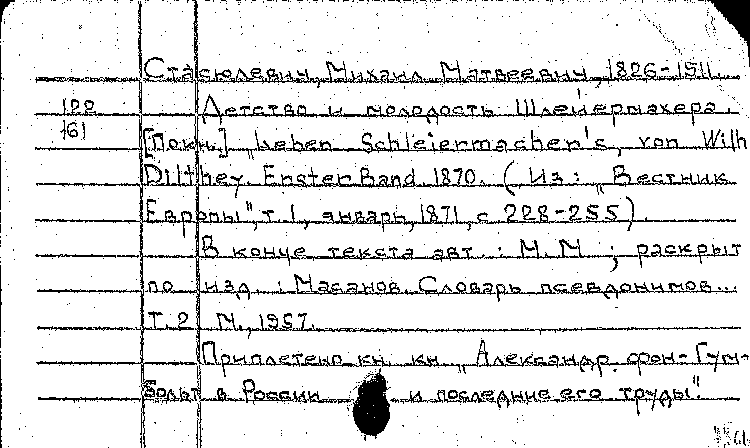 Стасюлевич, Михаил Матвеевич, 1826-1911.
122 Детство и молодость Шлейермахера.
161 [По кн.] „Leben Schleiermacher's, von Wilh
Dilthey. Erster Band. 1870. (Из: „Вестник
Европы", т. 1, январь, 1871, с 228-255).
В конце текста авт.: М. М ; раскрыт
по изд.: Масанов. Словарь псевдонимов...
Т. 2 М., 1957.
Приплетено к кн. „Александр фон-Гум-
больт в России и последние его труды".